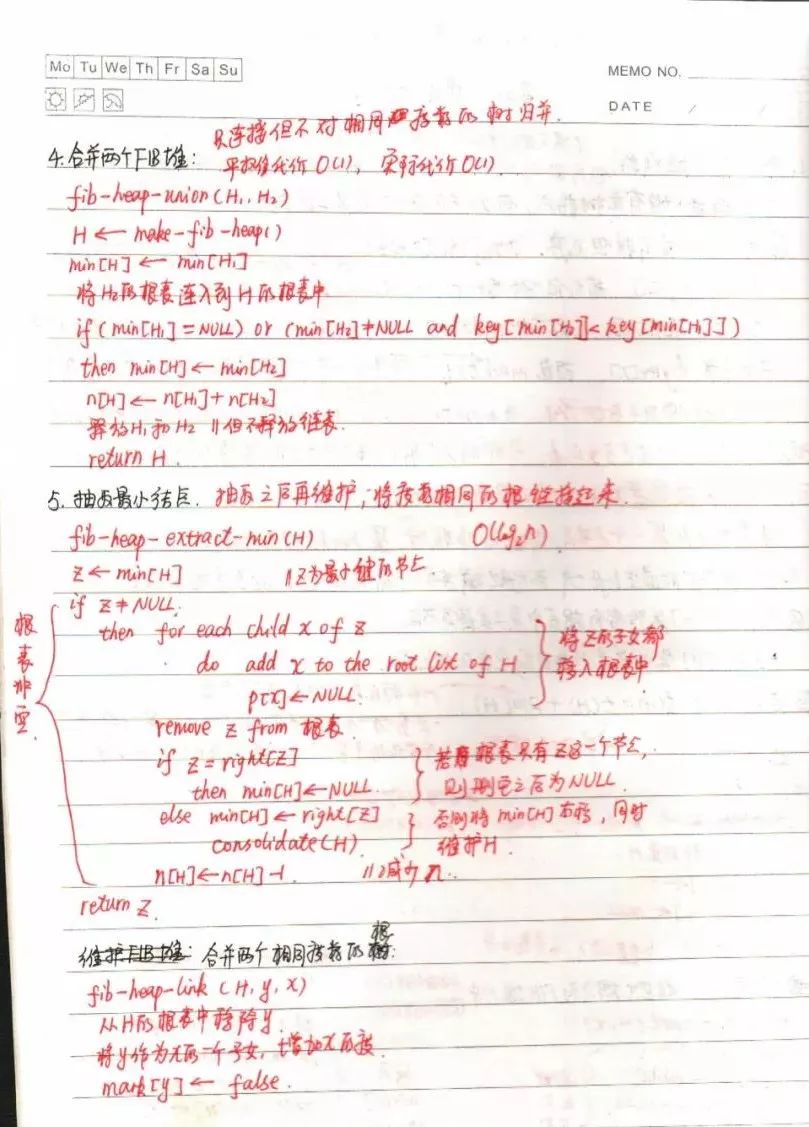 Mo Tu We Th Fr Sa Su
MEMO NO.
DATE / /
只连接但不对相同度数的树归并.
4.合并两个FIB堆:
平摊代价 O(1), 实际代价 O(1)
fib-heap-union(H1, H2)
H ← make-fib-heap()
min[H] ← min[H1]
将H2的根表连入到H的根表中
if (min[H1] = NULL) or (min[H2] ≠ NULL and key[min[H2]] < key[min[H1]])
then min[H] ← min[H2]
n[H] ← n[H1] + n[H2]
释放H1和H2 // 但不释放链表.
return H.
5. 抽取最小结点. 抽取之后再维护,将度数相同的根链接起来.
fib-heap-extract-min(H) O(log2n)
Z ← min[H] // Z为最小键的节点
if Z ≠ NULL.
根表非空.
then for each child x of z
do add x to the root list of H
p[x] ← NULL.
将Z的子女都
移入根表中
remove z from 根表.
if z = right[z]
then min[H] ← NULL.
若根表只有Z这一个节点,
则删它之后为NULL.
else min[H] ← right[z]
consolidate(H)
否则将 min[H] 右移, 同时
维护H.
n[H] ← n[H]-1. // 减少n.
return Z.
维护FIB堆: 合并两个相同度数的根:
fib-heap-link (H, y, x)
从H的根表中移除y.
将y作为x的一个子女, 增加x的度
mark[y] ← false.